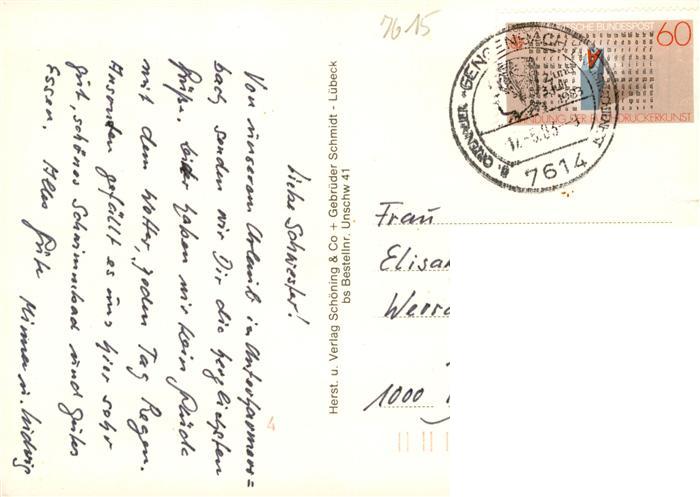 7615
60
DEUTSCHE BUNDESPOST
GENGENBACH
1983
7614
Liebe Schwester!
Von unserem Urlaub in Unterharmers=
bach senden wir Dir die herzlichsten
Grüße. Leider haben wir kein Glück
mit dem Wetter, jeden Tag Regen.
Ansonsten gefällt es uns hier sehr
gut, schönes Schwimmbad und gutes
Essen. Alles Gute Minna u. Ludwig
Herst. u. Verlag Schöning & Co + Gebrüder Schmidt - Lübeck
bs Bestellnr. Unschw 41
Frau
Elisa
Werra
1000
4